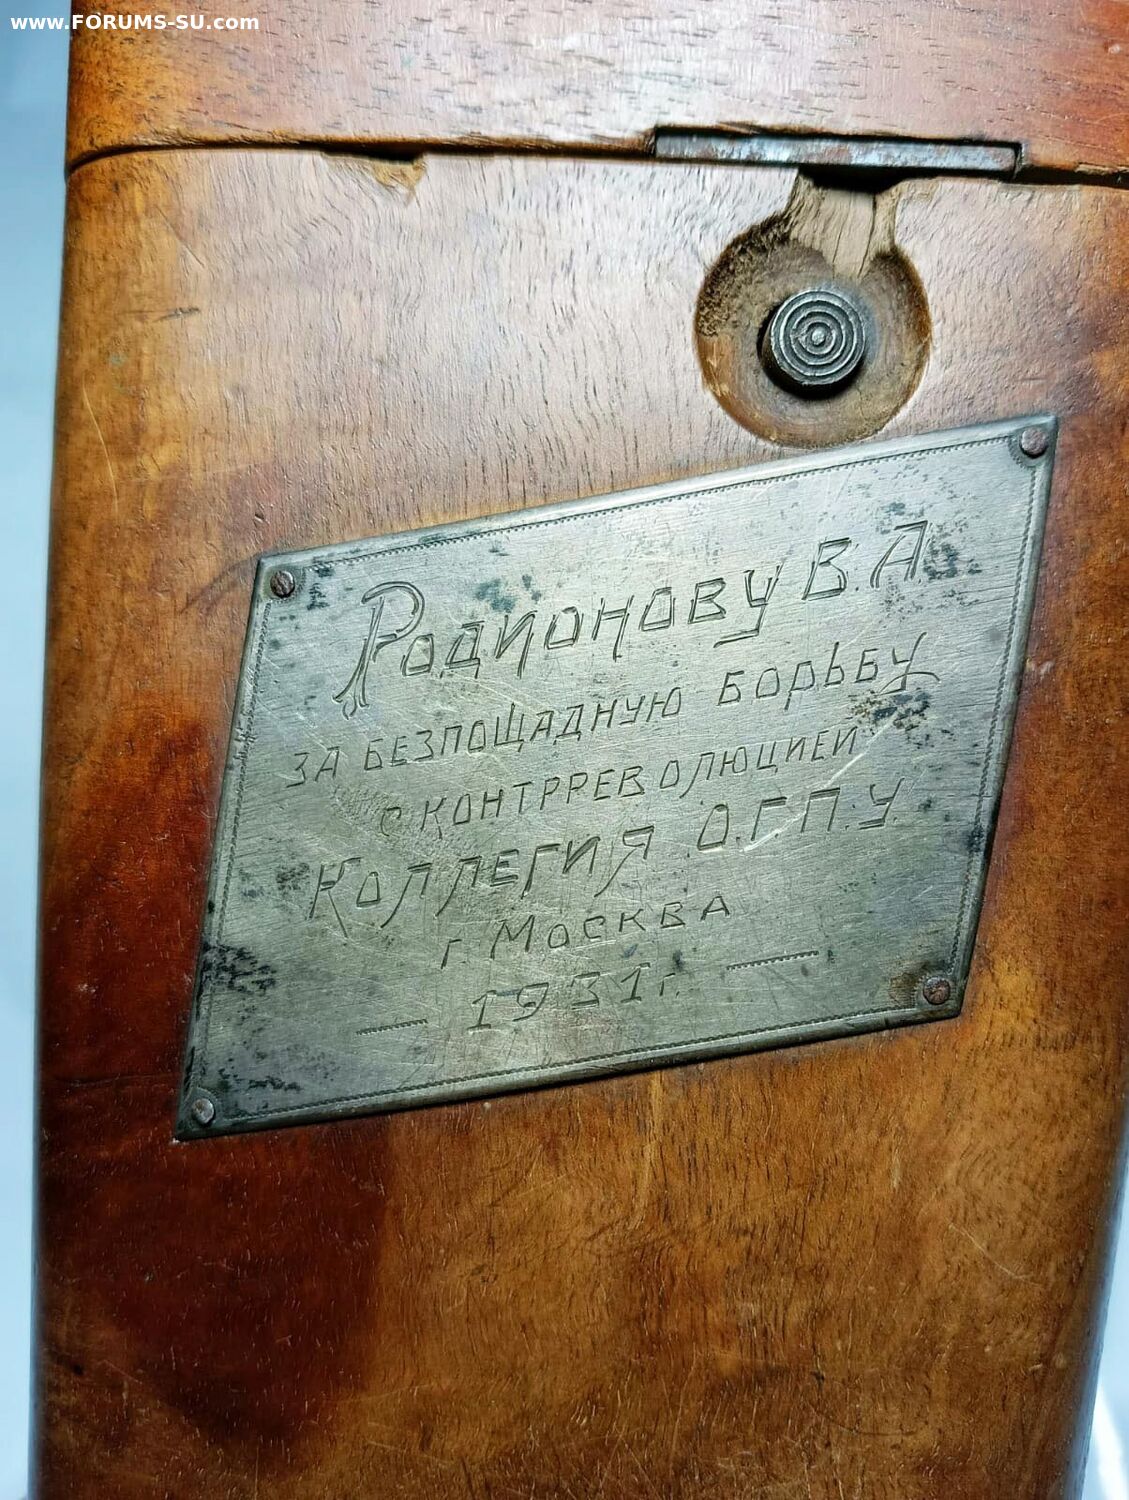 www.FORUMS-SU.com
Родионову В.А.
ЗА БЕЗПОЩАДНУЮ БОРЬБУ
С КОНТРРЕВОЛЮЦИЕЙ
КОЛЛЕГИЯ О.Г.П.У.
г. МОСКВА
1931 г.